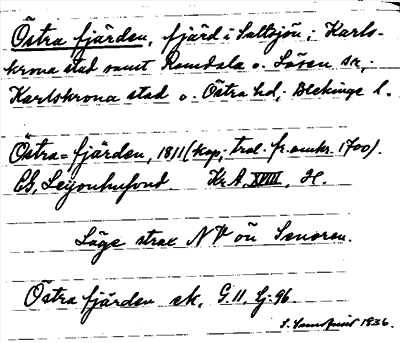 Östra fjärden, fjärd i Saltsjön; Karls-
krona stad samt Ramdala o. Lösen sn,
Karlskrona stad o. Östra hd; Blekinge l.
Östra=fjärden, 1811 (kop. trol. fr. omkr. 1700).
CG, Leijonhufvud. Kr.A. XVIII, H.
Läge strax NV ön Senoren.
Östra fjärden ek. G.11, Lj. 96.
1936.